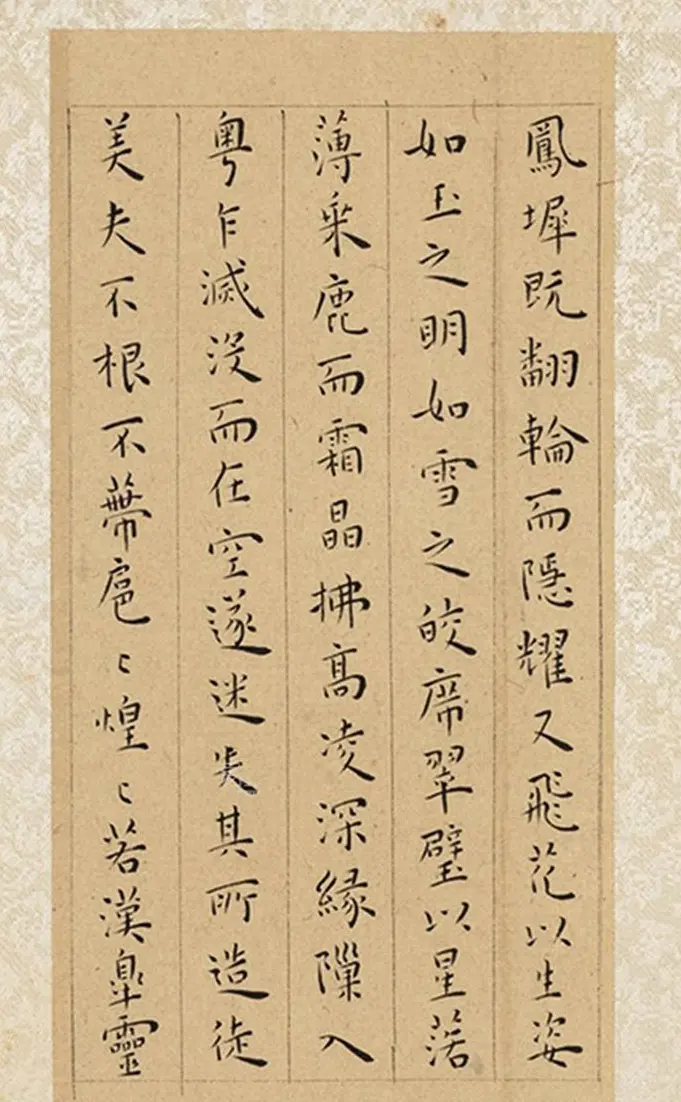 鳳墀既翻輪而隱耀又飛花以生姿
如玉之明如雪之皎席翠璧以星落
薄采鹿而霜晶拂高凌深緣隟入
粤乍滅没而在空遂迷失其所造徒
美夫不根不蔕扈〻煌〻若漢臯靈